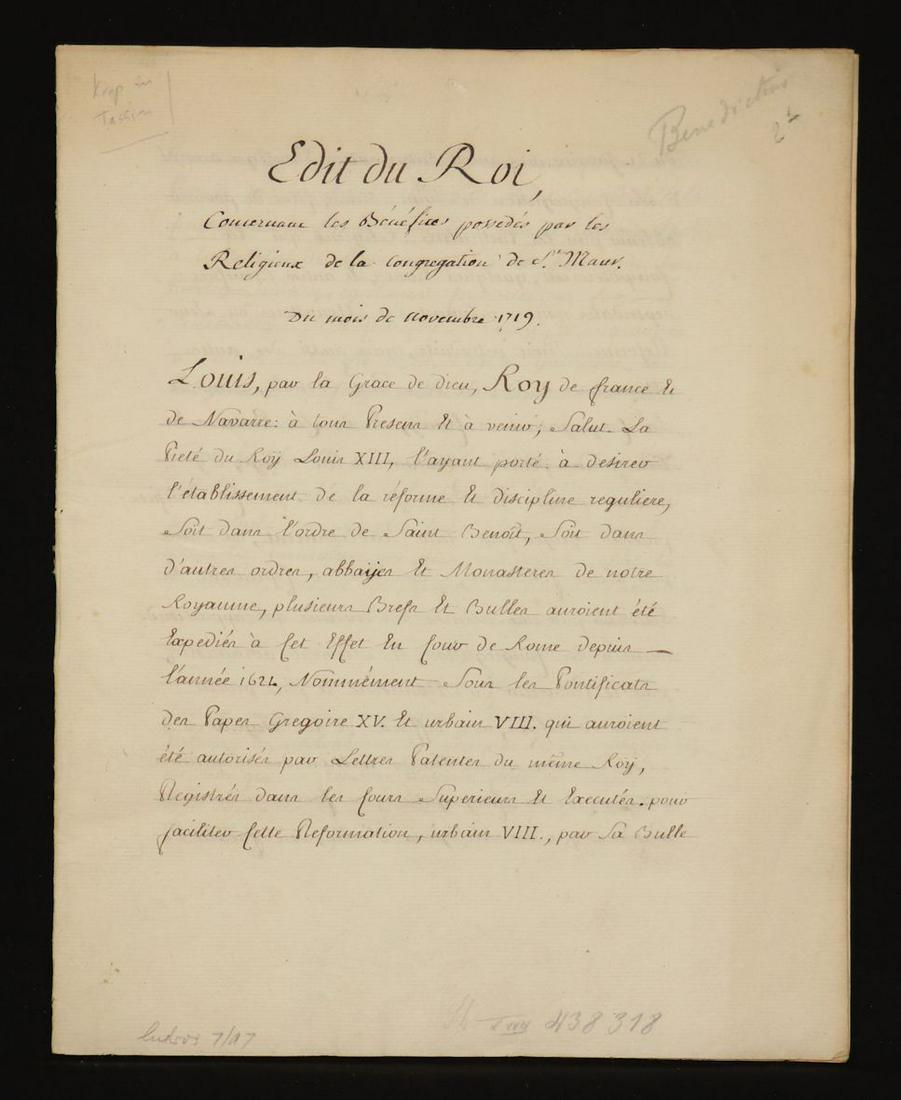 Keep in
Tassin
Benedictins
Edit du Roi,
Concernant les Bénéfices possedés par les
Religieux de la Congregation de St. Maur.
Du mois de novembre 1719.
Louis, par la Grace de dieu, Roy de france Et
de Navarre: à tous Presens Et à venir; Salut. La
Pieté du Roÿ Louis XIII, l'ayant porté à desirer
l'établissement de la réforme Et discipline reguliere,
Soit dans l'ordre de Saint Benoît, Soit dans
d'autres ordres, abbaÿes Et Monasteres de notre
Royaume, plusieurs Brefs Et Bulles auroient été
Expediés à Cet Effet En Cour de Rome depuis —
l'année 1621, Nommément Sous les Pontificats
des Papes Gregoire XV. Et urbain VIII. qui auroient
été autorisés par Lettres Patentes du même Roÿ,
Registrés dans les Cours Superieurs Et Executés. pour
faciliter Cette Reformation, urbain VIII., par Sa Bulle
7/17
438318